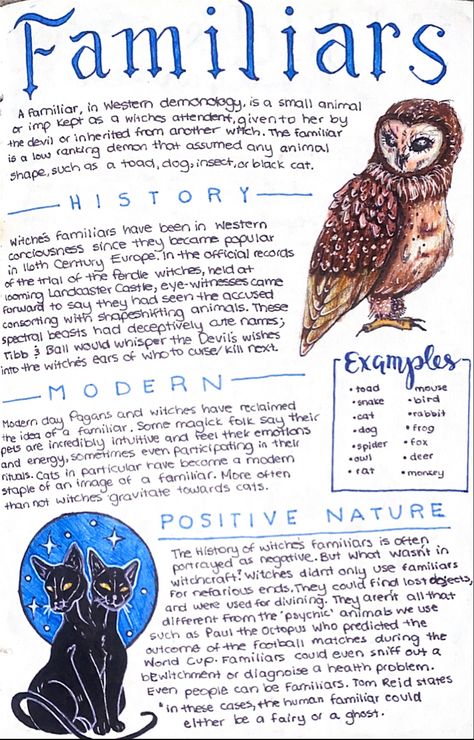 Familiars
A familiar, in Western demonology, is a small animal
or imp kept as a witches attendent, given to her by
the devil or inherited from another witch. The familiar
is a low ranking demon that assumed any animal
shape, such as a toad, dog, insect, or black cat.
HISTORY
Witche's familiars have been in Western
conciousness since they became popular
in 16th Century Europe. In the official records
of the trial of the Pendle witches, held at
looming Landcaster Castle, eye-witnesses came
forward to say they had seen the accused
consorting with shapeshifting animals. These
spectral beasts had deceptively cute names;
Tibb & Ball would whisper the Devil's wishes
into the witche's ears of who to curse/kill next.
Examples
• toad
• snake
• cat
• dog
• spider
• owl
• rat
mouse
• bird
• rabbit
• frog
• fox
• deer
• monkey
MODERN
Modern day Pagans and witches have reclaimed
the idea of a familiar. Some magick folk say their
pets are incredibly intuitive and feel their emotions
and energy, sometimes even participating in their
rituals. Cats in particular have become a modern
staple of an image of a familiar. More often
than not witches gravitate towards cats.
POSITIVE NATURE
The History of witche's familiars is often
portrayed as negative. But what wasn't in
witchcraft? Witches didn't only use familiars
for nefarious ends. They could find lost objects,
and were used for divining. They aren't all that
different from the 'psychic' animals we use
such as Paul the Octopus who predicted the
outcome of the football matches during the
World Cup. Familiars could even sniff out a
bewitchment or diagnoise a health problem.
Even people can be familiars. Tom Reid states
"in these cases, the human familiar could
either be a fairy or a ghost.